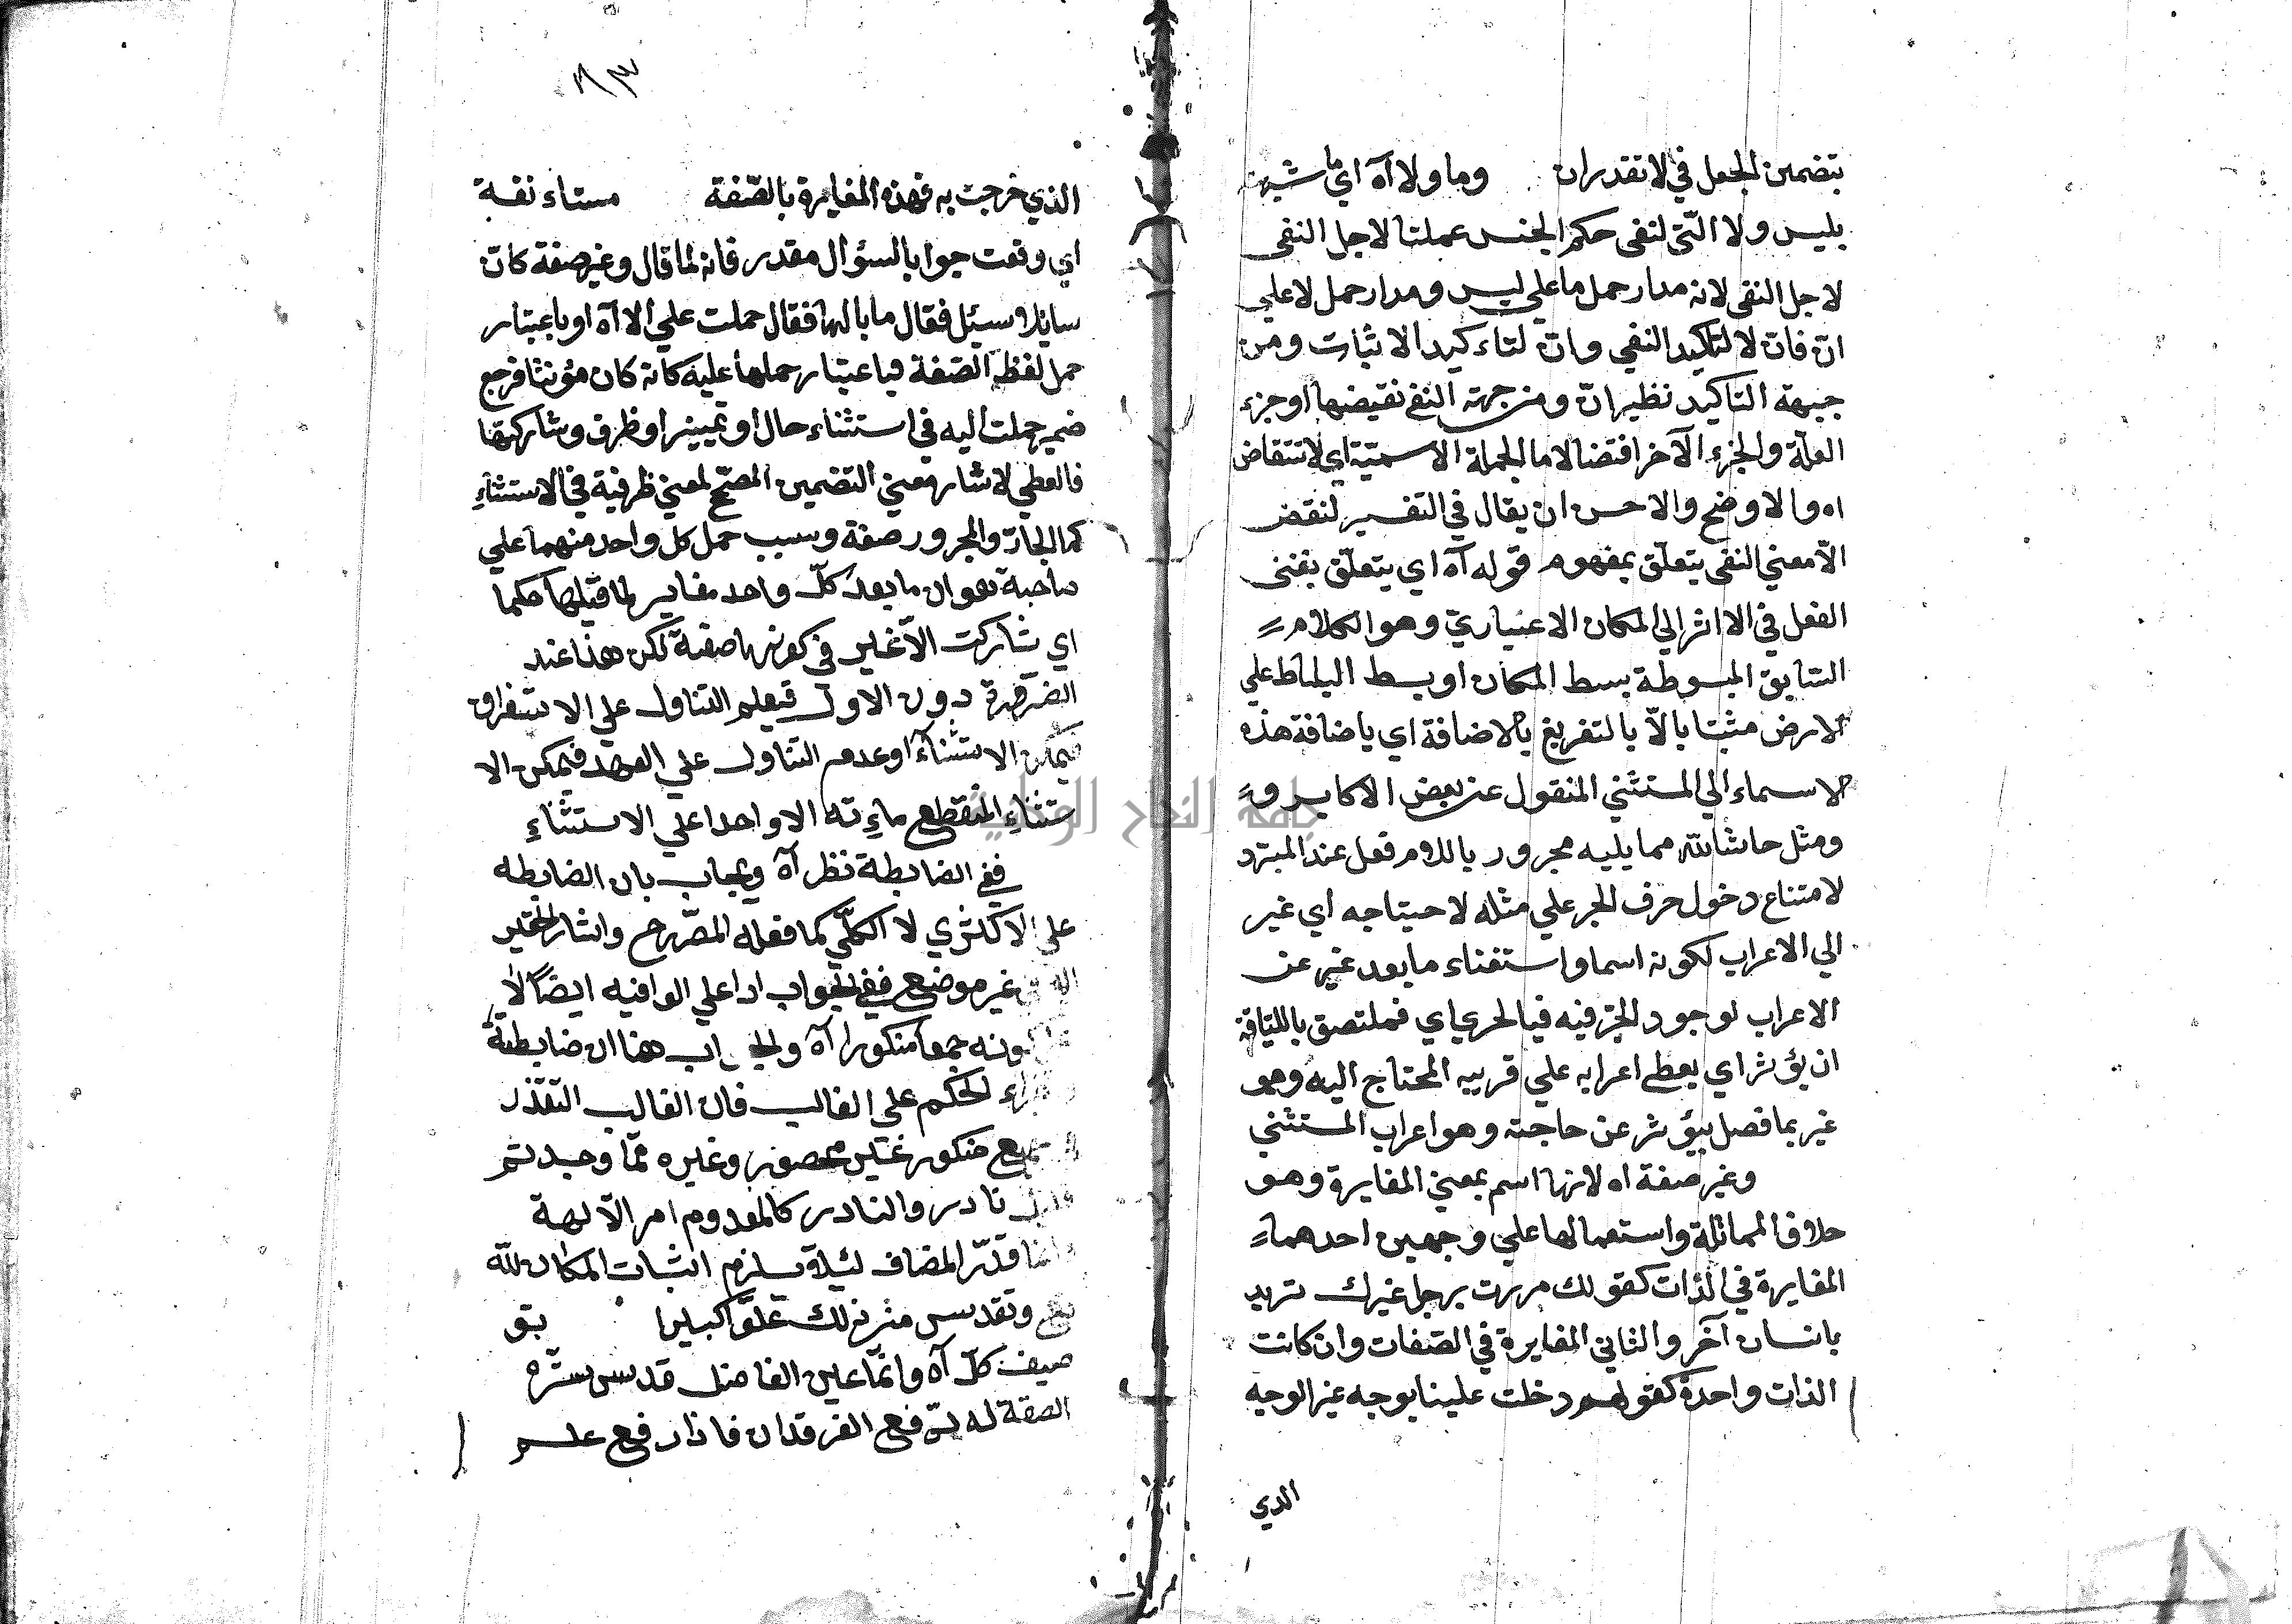 بتضمين الجعل في لا تقدران وما ولا آه اي ما شبهته
بليس ولا التي لنفي حكم الجنس عملتا لاجل النفي
لاجل النفي لانه مدار حمل ما علي ليس ومدار حمل لا علي
ان فان لا لتاكيد النفي وان لتاءكيد الاثبات ومن
جهة التاكيد نظير ان ومن جهته النفي نقيضها او جزء
العلة والجزء الآخر اقتضا لاما الجملة الاسمية اي لانتقاض
اه والاوضح والاحسن ان يقال في التفسير لنقض
الا معني النفي يتعلق بمفهوم قوله آه اي يتعلق بفني
الفعل في الا اثر الي المكان الاعتباري وهو الكلام
السابق المبسوطة بسط المكان او بسط البساط علي
الارض مثبتا بالا بالتفريغ بالاضافة اي باضافة هذه
الاسماء الي المستثني المنقول عن بعض الاكابر و
ومثل حاشا لله مما يليه مجرور باللام فعل عند المبرد
لامتناع دخول حرف الجر علي مثله لاحتياجه اي غير
الي الاعراب لكونه اسما واستغناء ما بعد غير عن
الاعراب لوجود الجر فيه فبالحري اي فملتصق باللياقة
ان يؤثر اي يعطي اعرابه علي قريبه المحتاج اليه وهو
غير بما فصل بيؤثر عن حاجته وهو اعراب المستثني
وغير صفة اه لانها اسم بمعني المغايرة وهو
خلاف المماثلة واستعمالها علي وجهين احدهما
المغايرة في الذات كقولك مررت برجل غيرك تريد
بانسان آخر والثاني المغايرة في الصفات وان كانت
الذات واحدة كقولهم دخلت علينا بوجه غير الوجه
الدي
٢٣
الذي خرجت به فهذه المغايرة بالصفة مستاءنفة
اي وقعت جوابا لسؤال مقدر فانه لما قال وغير صفة كان
سايلا سيئل فقال ما بالها فقال حملت علي الا آه او باعتبار
حمل لفظ الصفة فباعتبار حملها عليه كانه كان مؤنثا فرجع
ضمير حملت اليه في استثناء حال او تمييز او ظرف وشاركتها
فالعطي لاشار معني التضمين المصحح لمعني ظرفية في الاستثناء
كما الجار والمجرور صفة وسبب حمل كل واحد منهما علي
صاحبة هو ان ما بعد كل واحد مغاير لما قبلها حكما
اي شاركت الا غير في كونها صفة لكن هذا عند
الضرورة دون الاول فيعلم التناول علي الاستغراق
فيمكن الاستثناء او عدم التناول علي العهد فيمكن الا
ستثناء المنقطع ماءته الا واحدا علي الاستثناء
ففي الضابطة نظر آه ويجاب بان الضابطه
علي الاكثري لا الكلي كما فعله المص رح واشار الحقير
غير موضع ففي الجواب اداعلي الوافيه ايضا لا
كونه جمعا منكورا آه والجواب هنا ان ضابطة
اجراء الحكم علي الغالب فان الغالب التعذر
جمع منكور غير محصور وغيره مما وجد ثم
نادر والنادر كالمعدوم امر الآلهة
انما قدر المضاف لئلا يلزم اثبات المكان لله
تعالى وتقدس من ذلك علوا كبيرا بتو
صيف كل آه وانما عين الفاضل قدس سره
الصفة له برفع الفرقدان فاذا رفع علم